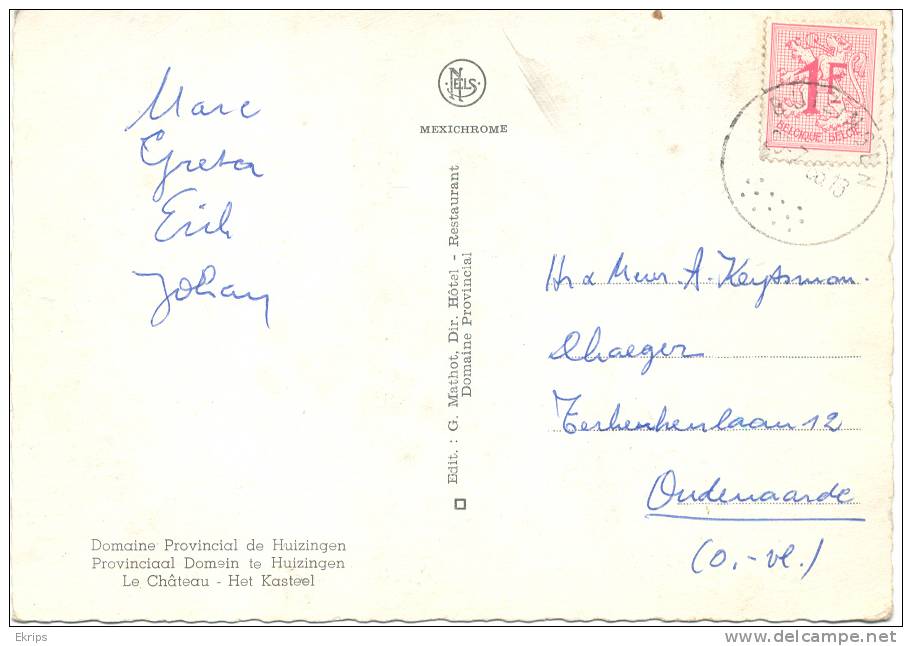 Marc
Greta
Erik
Johan
NELS
MEXICHROME
Edit. : G. Mathot, Dir. Hôtel - Restaurant
Domaine Provincial
1F
BELGIQUE BELGIE
Hr & Mevr. A. Keytsman.
Dhaeger
12
Oudenaarde
(O.-vl.)
Domaine Provincial de Huizingen
Provinciaal Domein te Huizingen
Le Château - Het Kasteel
Ekrips
www.delcampe.net